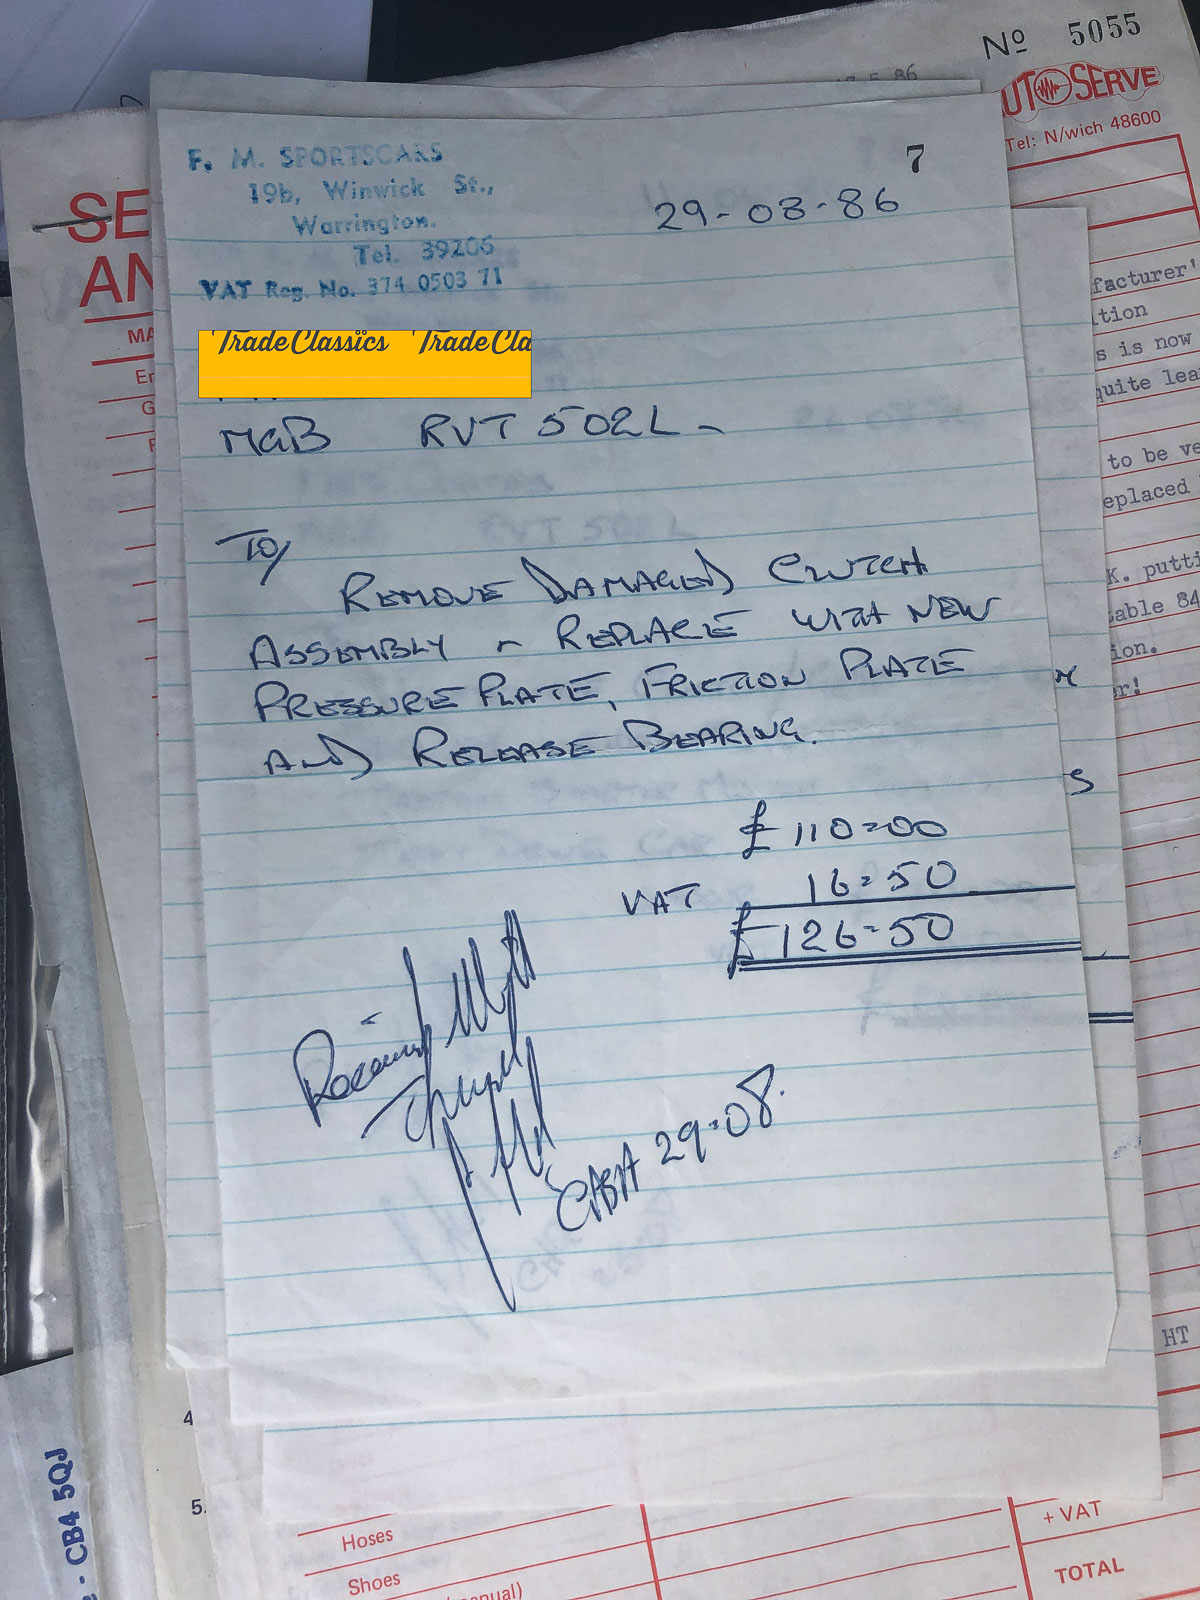 Nº 5055
AUTOSERVE
Tel: N/wich 48600
5.86
F. M. SPORTSCARS
19b, Winwick St.,
Warrington.
Tel. 39206
VAT Reg. No. 374 0503 71
7
29-08-86
TradeClassics TradeCla
MGB RVT 502L -
TO/
REMOVE DAMAGED CLUTCH
ASSEMBLY - REPLACE WITH NEW
PRESSURE PLATE, FRICTION PLATE
AND RELEASE BEARING.
£110=00
VAT 16=50
£126=50
Received
29-08.
SE
AN
MA
En
G
facturer'
tion
s is now
quite lea
to be ve
eplaced
K. putti
able 84
ion.
r!
S
HT
4
5.
CB4 5QJ
Hoses
Shoes
nual)
+ VAT
TOTAL